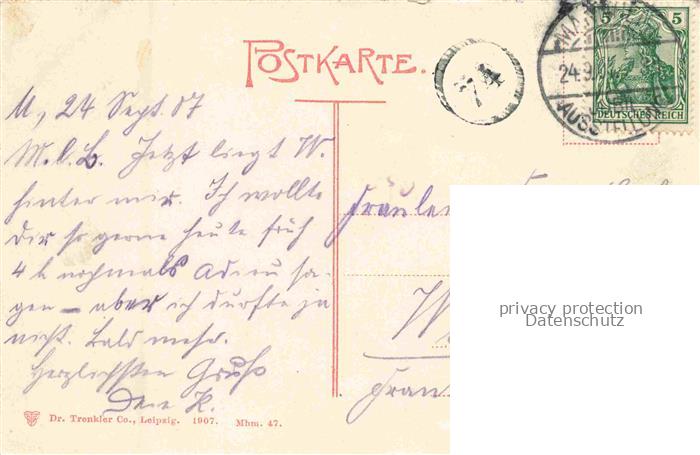 POSTKARTE.
74
24.9.
AUSSTELLUNG
5 5
DEUTSCHES REICH
M, 24 Sept. 07
M. l. B. Jetzt liegt W.
hinter mir. Ich wollte
Dir so gerne heute früh
4 h nochmals Adieu sa-
gen – aber ich durfte ja
nicht. Bald mehr.
Herzlichsten Gruß
Dein K.
Fräulein
privacy protection
Datenschutz
Dr. Trenkler Co., Leipzig. 1907. Mhm. 47.